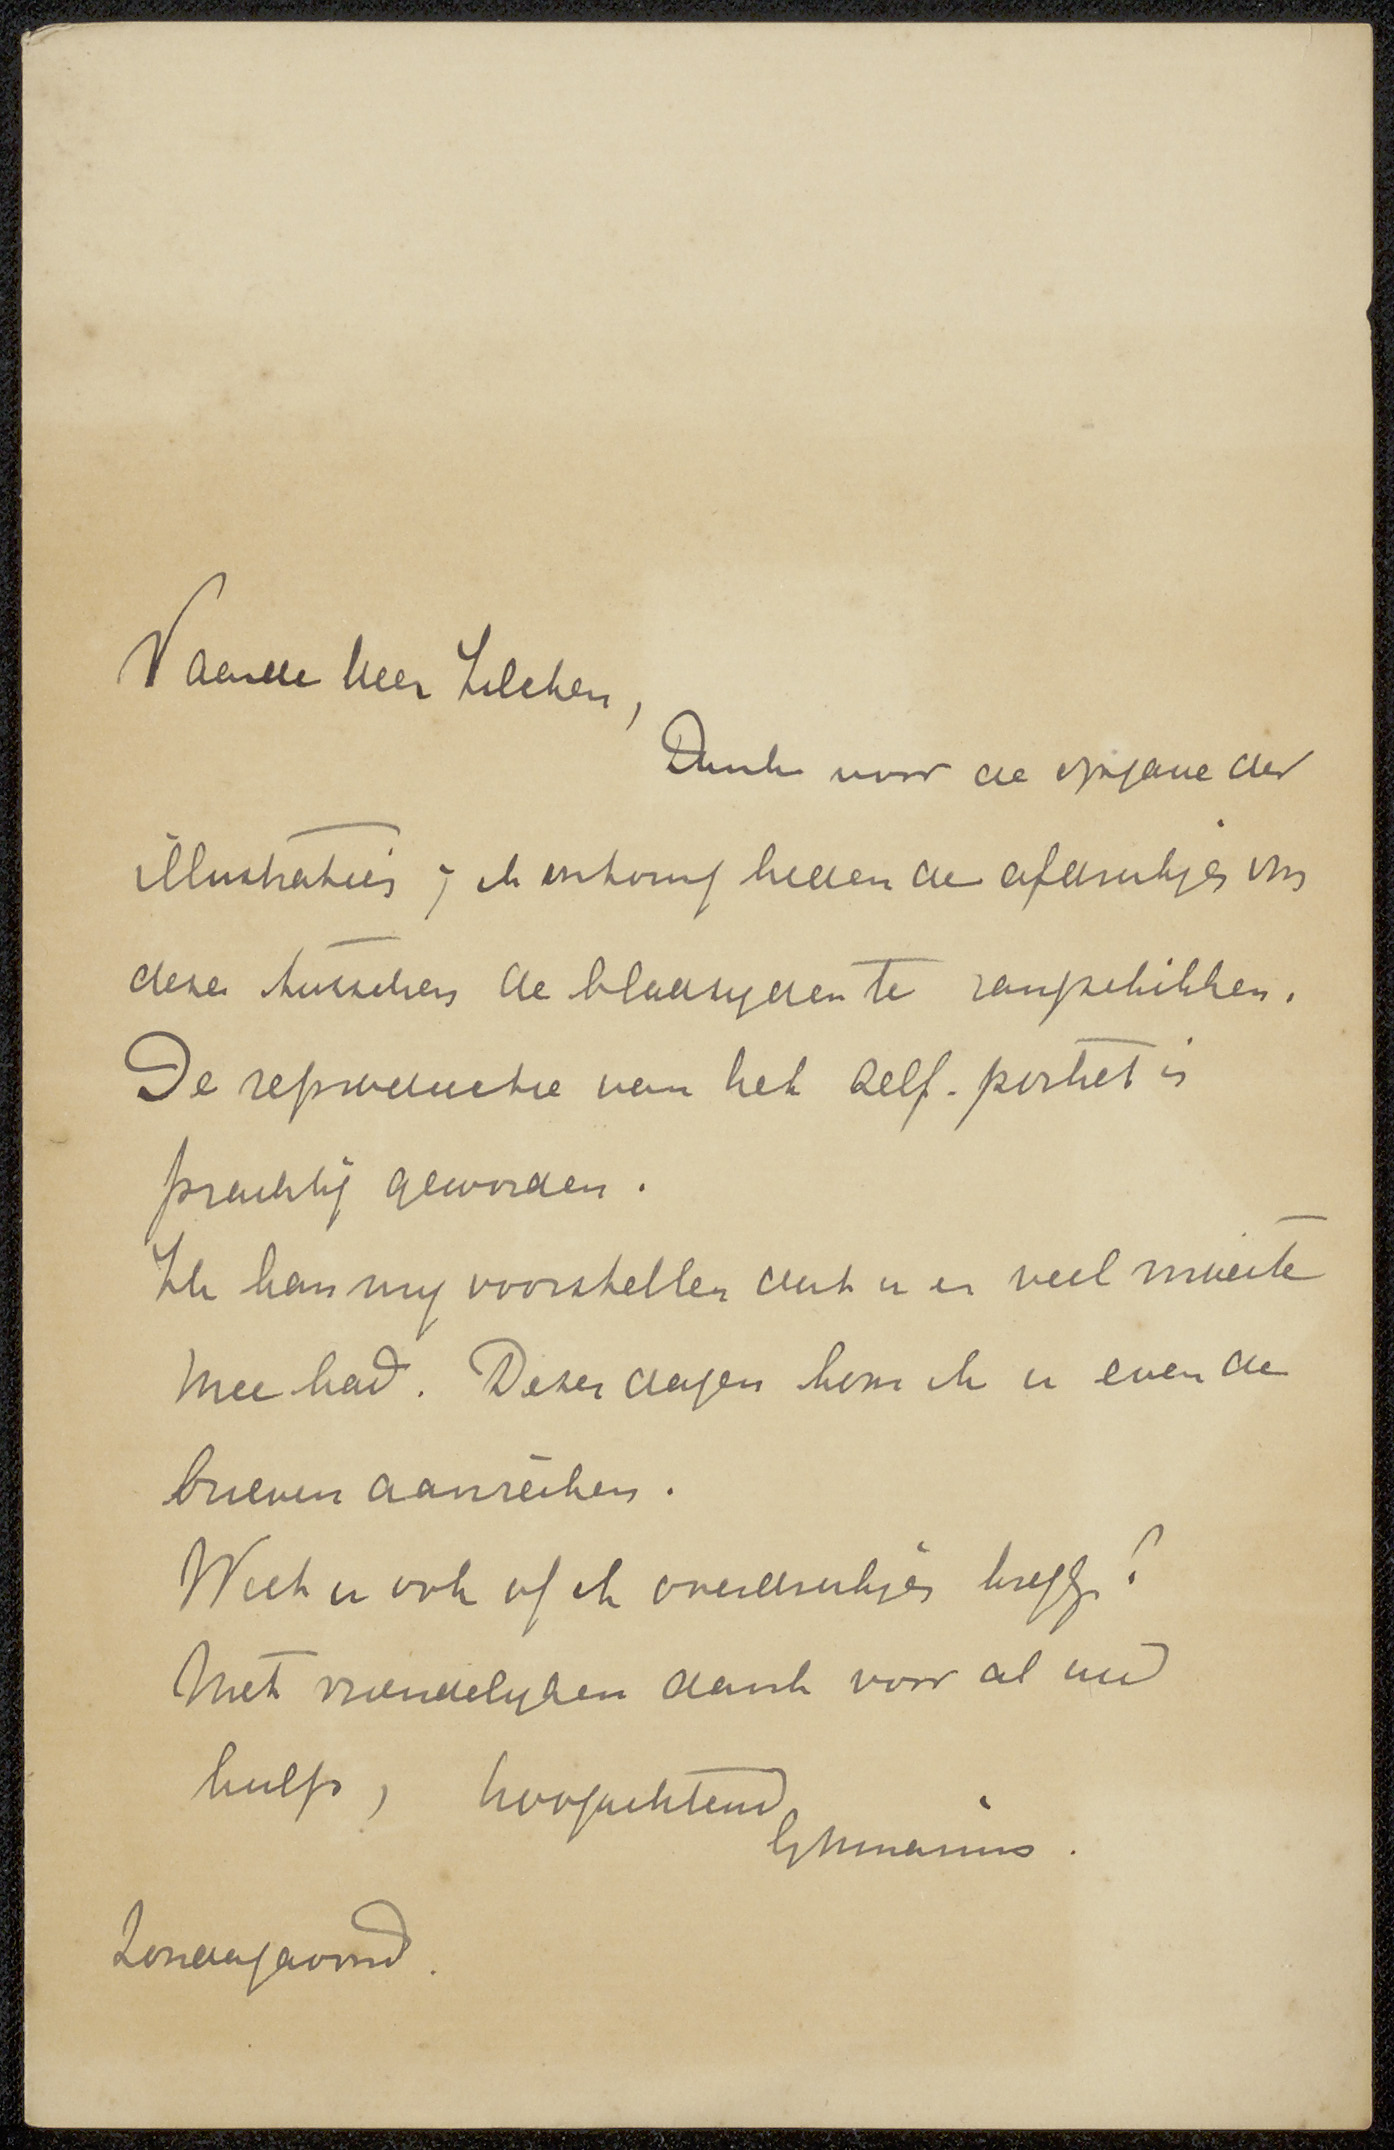 Waarde Heer Zilcken,
Dank voor de opgave der
illustraties; ik ontvang heden de afdrukjes om
deze tusschen de bladzyden te rangschikken.
De reproductie van het zelf-portret is
prachtig geworden.
Ik kan my voorstellen dat u er veel moeite
mee had. Dezer dagen kom ik u even de
brieven aanreiken.
Weet u ook of ik overdrukjes krijg?
Met vriendelyken dank voor al uw
hulp, hoogachtend
GHMarius.
Zondagavond.